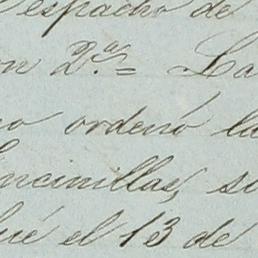 espacho de
on 2.ª = La
no ordenó la
Encinillas, su
fué el 13 de